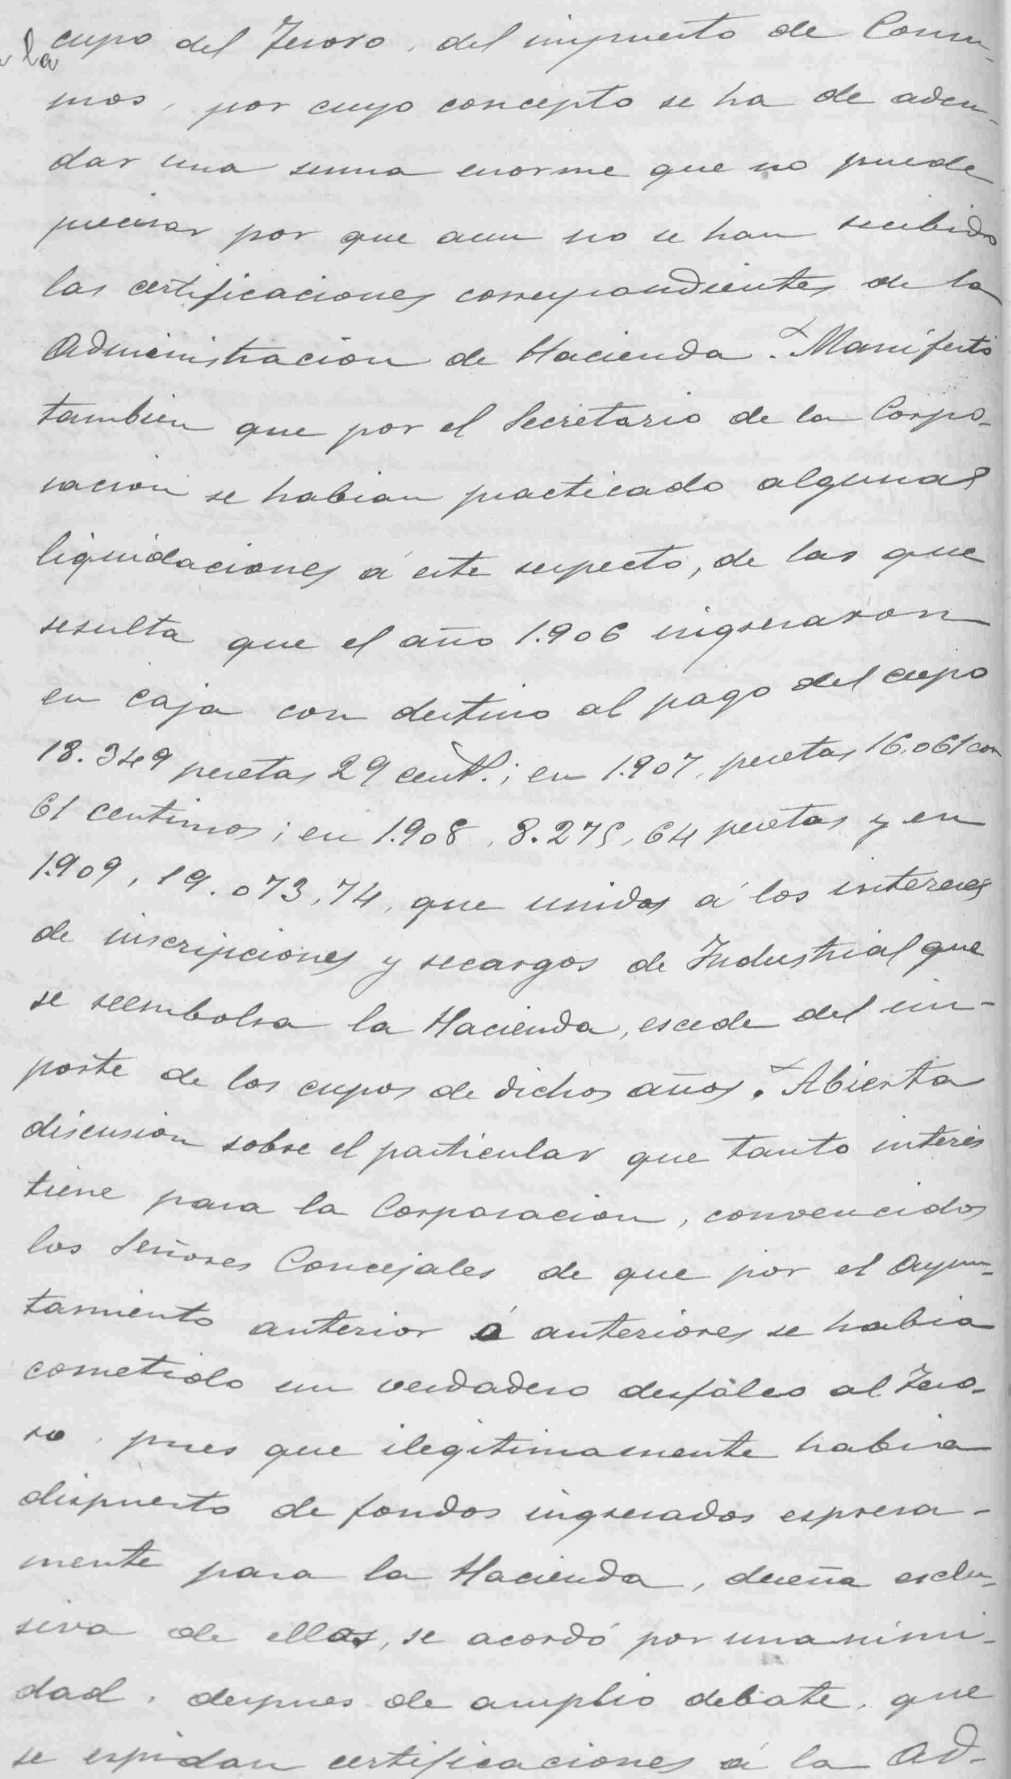 la cupo del Tesoro, del impuesto de Consu-
mos, por cuyo concepto se ha de adeu-
dar una suma enorme que no puede
precisar por que aun no se han recibido
las certificaciones correspondientes de la
Administración de Hacienda. Manifestó
tambien que por el Secretario de la Corpo-
ración se habian practicado algunas
liquidaciones á este respecto, de las que
resulta que el año 1.906 ingresaron
en caja con destino al pago del cupo
18.349 pesetas 29 cents.; en 1.907, pesetas 16.061 con
61 centimos; en 1.908, 8.275,64 pesetas y en
1.909, 19.073,74, que unidos á los intereses
de inscripciones y recargos de Industrial que
se reembolsa la Hacienda, escede del im-
porte de los cupos de dichos años. Abierta
discusion sobre el particular que tanto interés
tiene para la Corporacion, convencidos
los Señores Concejales de que por el Ayun-
tamiento anterior ó anteriores se habia
cometido un verdadero desfalco al Teso-
ro, pues que ilegitimamente habia
dispuesto de fondos ingresados espresa-
mente para la Hacienda, dueña esclu-
siva de ellos, se acordó por unanimi-
dad, despues de amplio debate, que
se espidan certificaciones á la Ad-